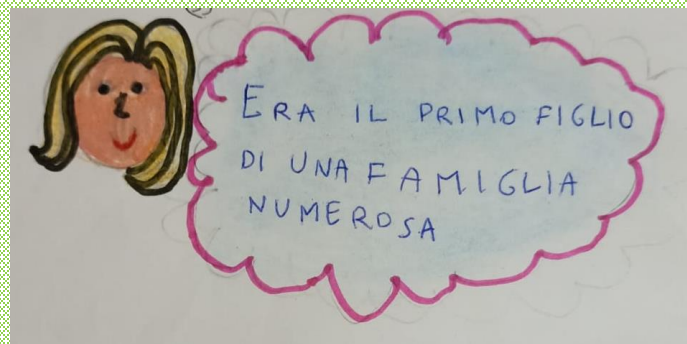 ERA IL PRIMO FIGLIO
DI UNA FAMIGLIA
NUMEROSA